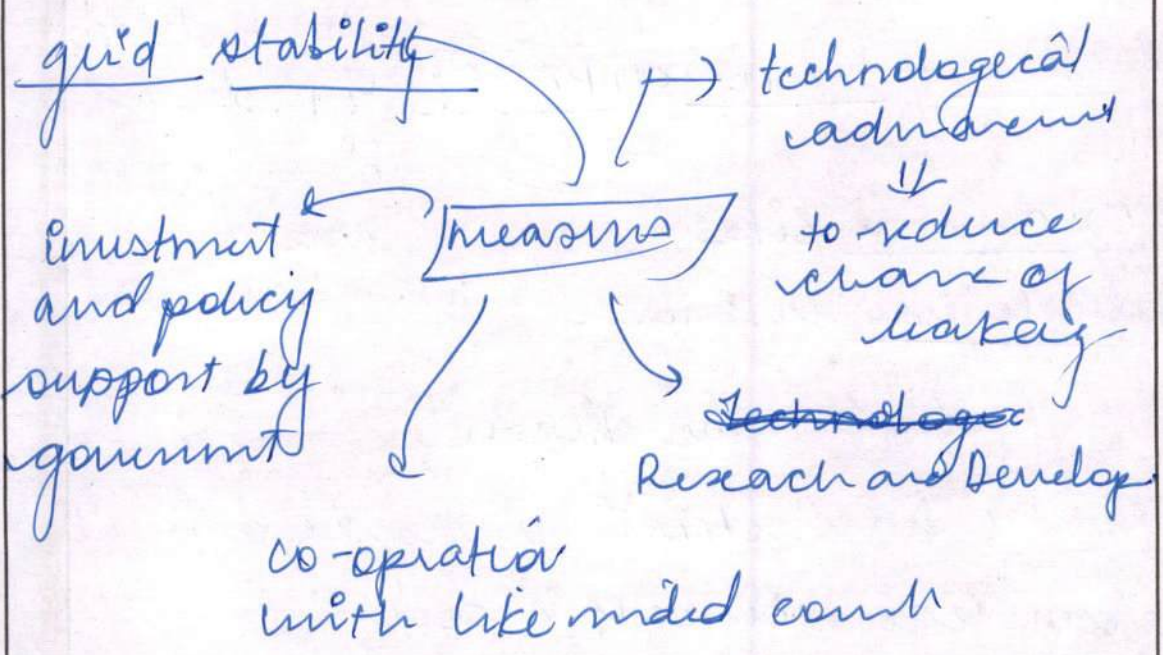 grid stability
technological
advancement
⇓
to reduce
chance of
leakage
measures
investment
and policy
support by
government
Technologe
Research and Develop
co-operation
with like minded